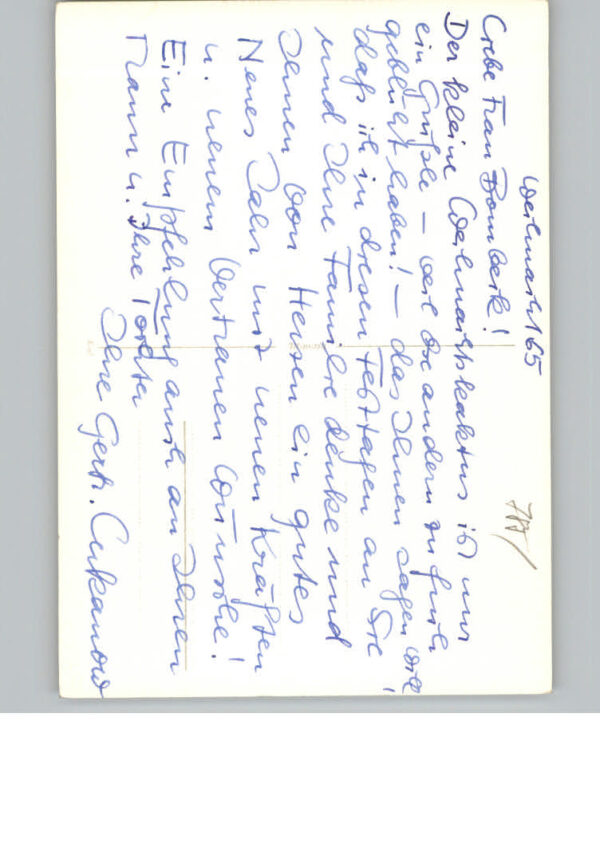 Weihnacht 65
Liebe Frau Bombeck!
Der kleine Weihnachtskaktus ist nur
ein Grüßle – weil die andern zu früh
geblüht haben! – das Ihnen sagen will,
daß ich in diesen Festtagen an Sie
und Ihre Familie denke und
Ihnen von Herzen ein gutes
Neues Jahr mit neuen Kräften
u. neuem Vertrauen wünsche!
Eine Empfehlung auch an Ihren
Mann u. Ihre Tochter
Ihre Gertr.